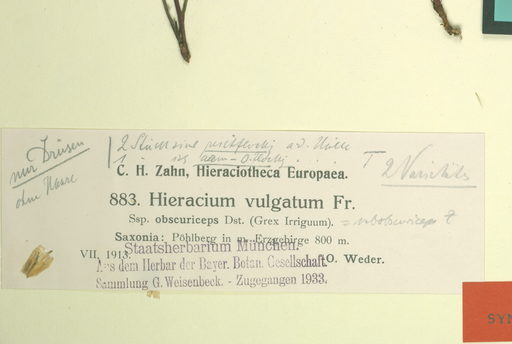 nur Drüsen
ohne Haare
2 Stück sind
2 Varietäten
C. H. Zahn, Hieraciotheca Europaea.
883. Hieracium vulgatum Fr.
Ssp. obscuriceps Dst. (Grex Irriguum).
Saxonia: Pöhlberg in m. Erzgebirge 800 m.
VII, 1913. O. Weder.
Staatsherbarium München.
Aus dem Herbar der Bayer. Botan. Gesellschaft.
Sammlung G. Weisenbeck. - Zugegangen 1933.
SYN